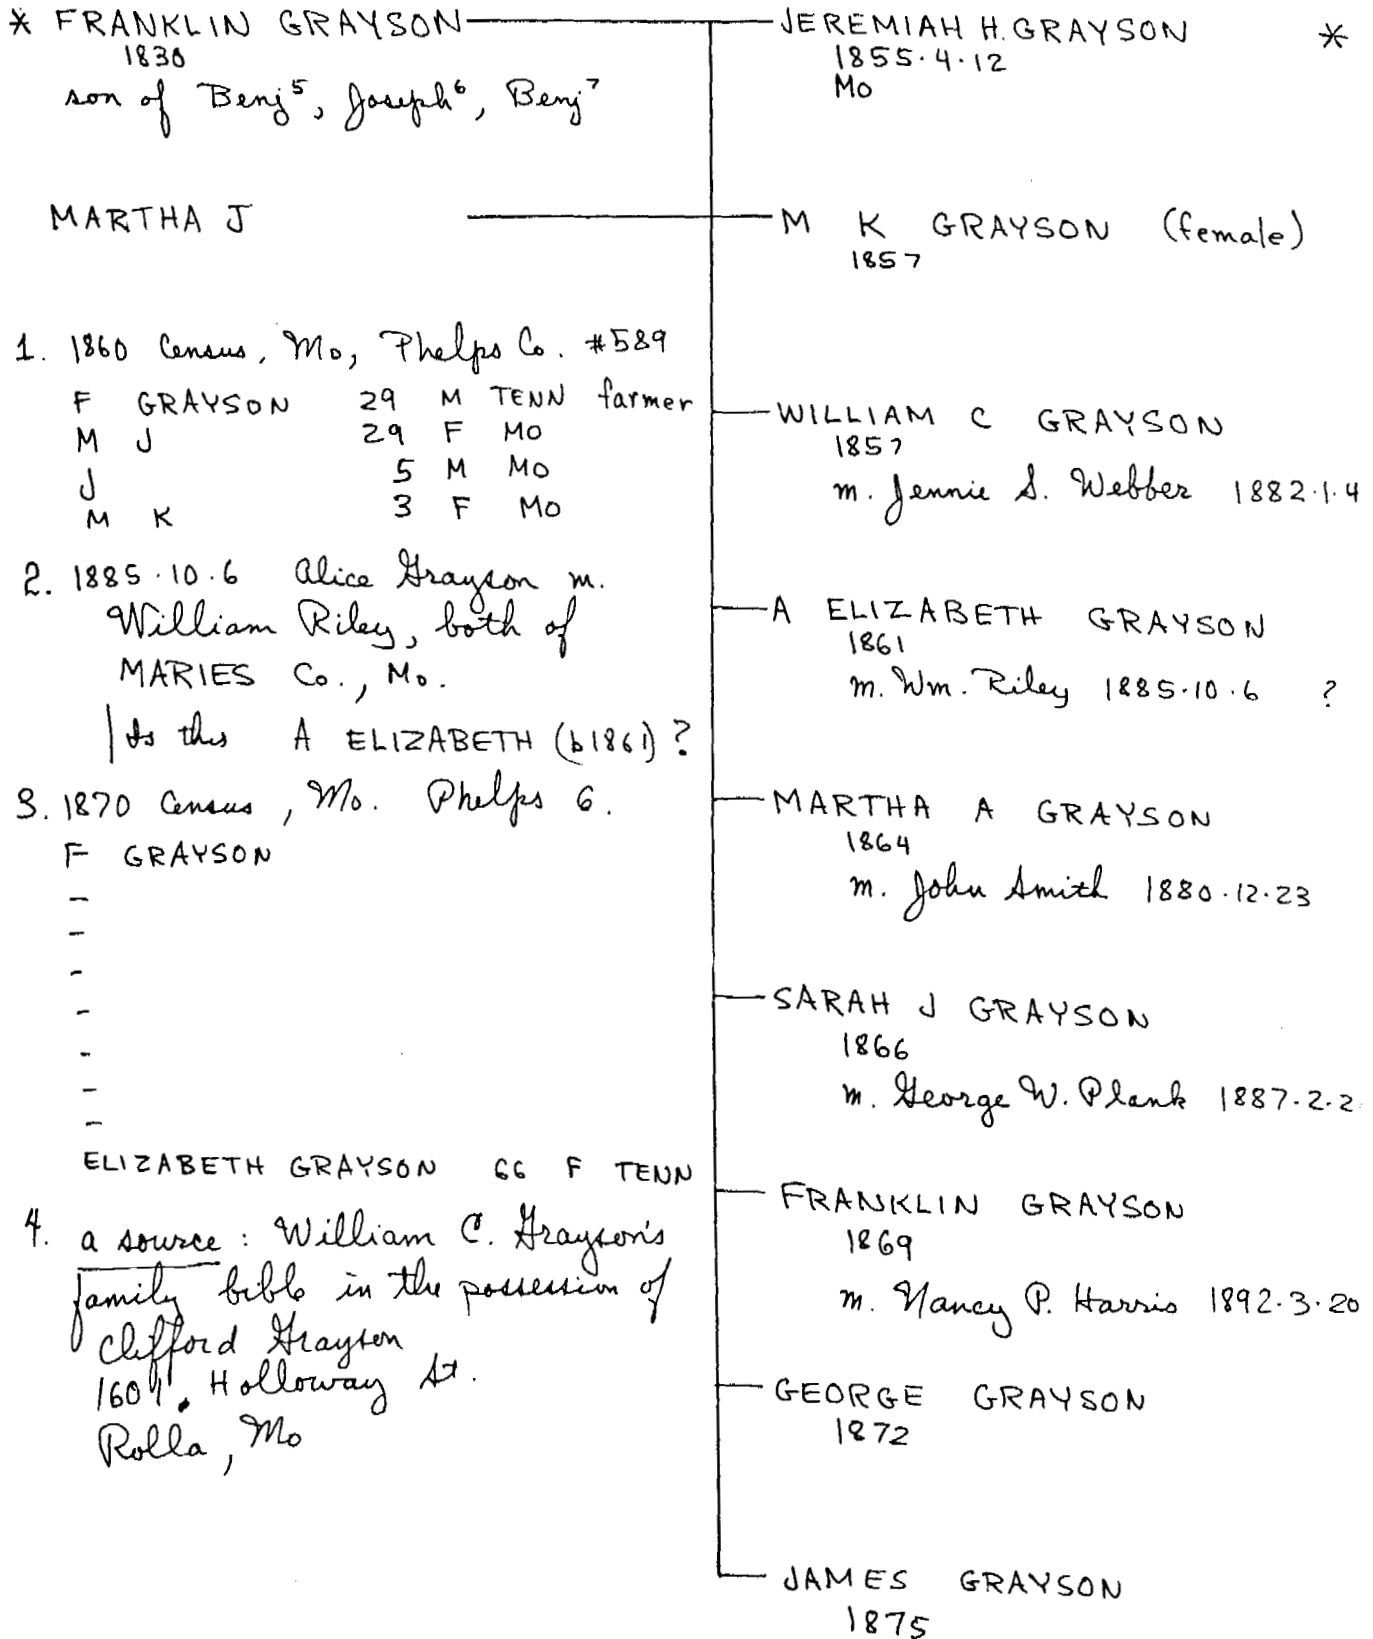 * FRANKLIN GRAYSON
1830
son of Benj⁵, Joseph⁶, Benj⁷
MARTHA J
1. 1860 Census, Mo, Phelps Co. #589
F GRAYSON 29 M TENN farmer
M J 29 F MO
J 5 M MO
M K 3 F MO
2. 1885.10.6 Alice Grayson m.
William Riley, both of
MARIES Co., Mo.
Is this A ELIZABETH (b1861)?
3. 1870 Census, Mo. Phelps Co.
F GRAYSON
-
-
-
-
-
-
-
ELIZABETH GRAYSON 66 F TENN
4. a source: William C. Grayson's
family bible in the possession of
Clifford Grayson
Holloway St.
Rolla, Mo
JEREMIAH H. GRAYSON *
1855.4.12
Mo
M K GRAYSON (female)
1857
WILLIAM C GRAYSON
1857
m. Jennie S. Webber 1882.1.4
A ELIZABETH GRAYSON
1861
m. Wm. Riley 1885.10.6 ?
MARTHA A GRAYSON
1864
m. John Smith 1880.12.23
SARAH J GRAYSON
1866
m. George W. Plank 1887.2.2
FRANKLIN GRAYSON
1869
m. Nancy P. Harris 1892.3.20
GEORGE GRAYSON
1872
JAMES GRAYSON
1875